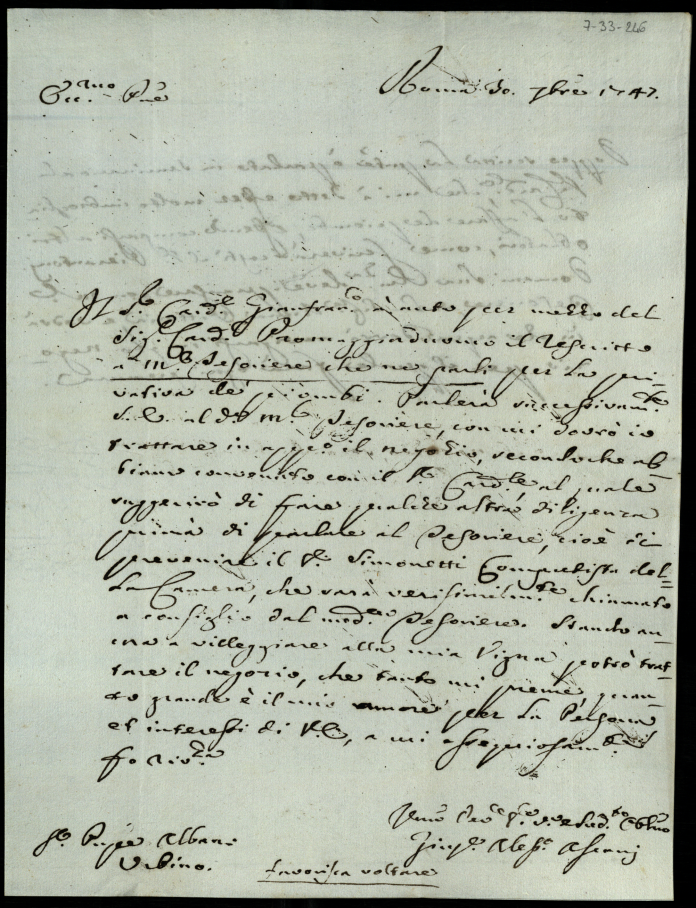 7-33-246
Ecc.mo P.ne
Roma 30. 7bre 1747.
Il S.r Card.le Gianfran.co à auto per mezzo del
Sig.r Card.le Promaggiaduomo il Rescritto
a M.r Tesoriere che ne parli per la pri-
vativa de' piombi. Parlerà successivam.te
S. E. al d.o M.r Tesoriere, con cui dovrò io
trattare in app.o il negozio, secondoche ab-
biamo convenuto con il S.r Card.le al quale
suggerirò di fare qualche altra diligenza
prima di parlare al Tesoriere, cioè di
prevenire il S.r Simonetti Computista del-
la Camera, che sarà verisimilm.te chiamato
a consiglio dal med.mo Tesoriere. Stando an-
cora a villeggiare alla mia Vigna potrò trat-
tare il negozio, che tanto mi preme quan-
to grande è il mio amore per la Persona
et interessi di V.E., a cui ossequiosam.te
fo riv.za
Giusep.e Aless.o
S.r P.npe Albani
Urbino.
favorisca voltare